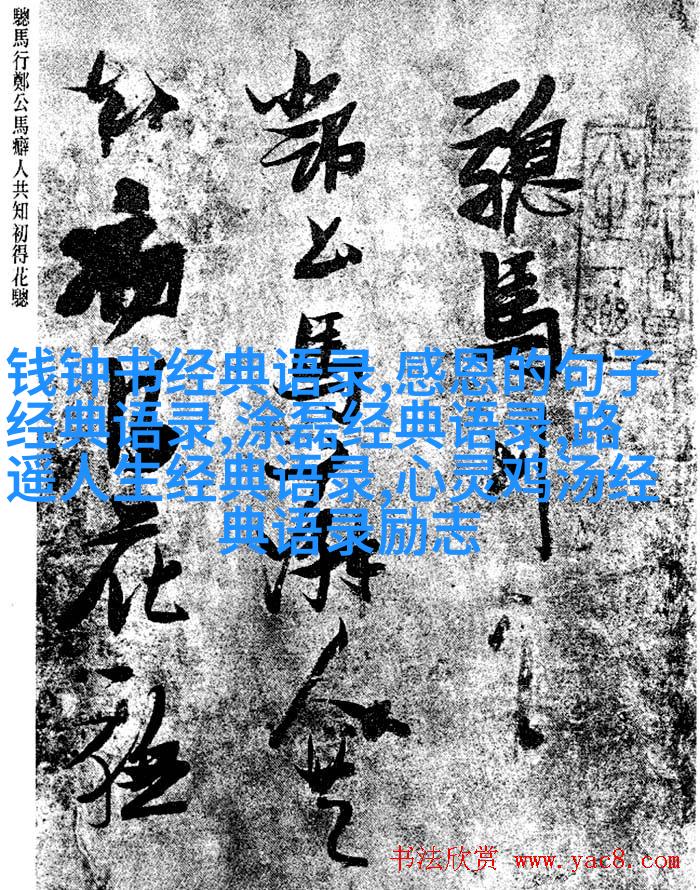 驄馬行鄭公馬癖人共知初得花驄
驄馬行
鄭公馬癖人共
知初得花驄
钱钟书经典语录,感恩的句子
经典语录,涂磊经典语录,路
遥人生经典语录,心灵鸡汤经
典语录励志
书法欣赏 www.yac8.com